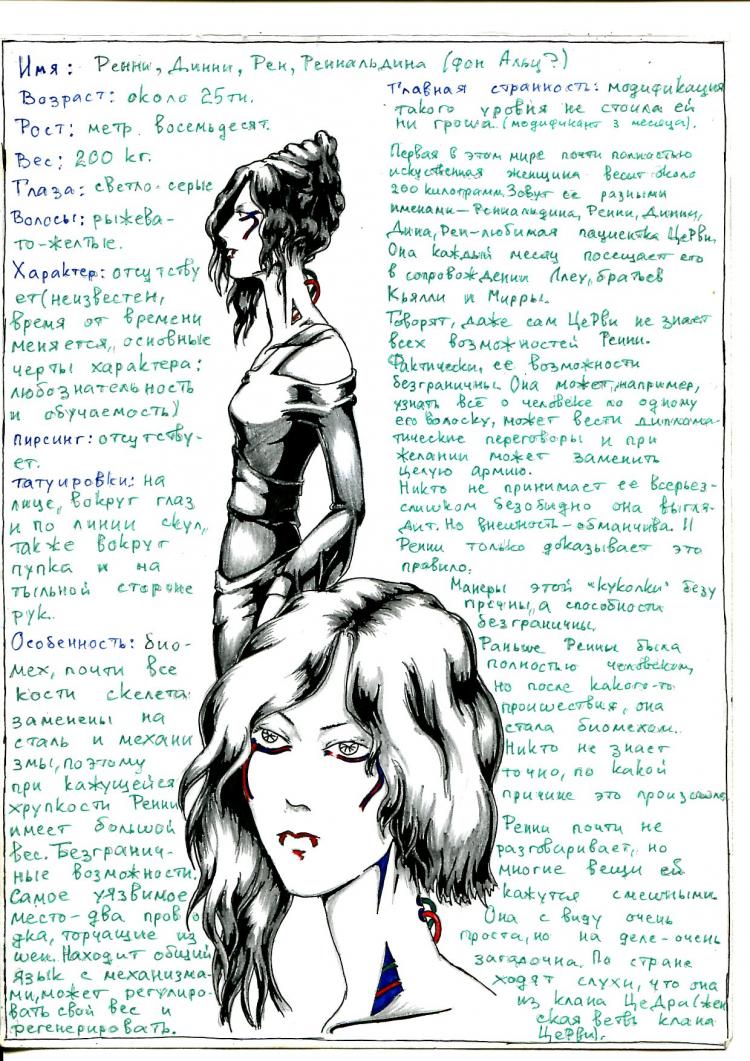 Имя: Ренни, Динни, Рен, Реннальдина (фон Альц?)
Возраст: около 25ти.
Рост: метр восемьдесят.
Вес: 200 кг.
Глаза: светло-серые
Волосы: рыжева-
то-желтые.
Характер: отсутству
ет(неизвестен,
время от времени
меняется, основные
черты характера:
любознательность
и обучаемость)
Пирсинг: отсутству-
ет.
Татуировки: на
лице, вокруг глаз
и по линии скул,
также вокруг
пупка и на
тыльной стороне
рук.
Особенность: био-
мех, почти все
кости скелета
заменены на
сталь и механи
змы, поэтому
при кажущейся
хрупкости Ренни
имеет большой
вес. Безгранич-
ные возможности.
Самое уязвимое
место-два прово
дка, торчащие из
шеи. Находит общий
язык с механизма-
ми, может регулиро-
вать свой вес и
регенерировать.
Главная странность: модификация
такого уровня не стоила ей
ни гроша (модификант 3 месяца).
Первая в этом мире почти полностью
искуственная женщина весит около
200 килограмм. Зовут ее разными
именами-Реннальдина, Ренни, Динни,
Дина, Рен-любимая пациентка ЦеРви.
Она каждый месяц посещает его
в сопровождении Ллеу, братьев
Кьялли и Мирры.
Говорят, даже сам ЦеРви не знает
всех возможностей Ренни.
Фактически, ее возможности
безграничны. Она может, например,
узнать всё о человеке по одному
его волоску, может вести диплома-
тические переговоры и при
желании может заменить
целую армию.
Никто не принимает ее всерьез-
слишком безобидно она выгля-
дит. Но внешность-обманчива!!
Ренни только доказывает это
правило.
Манеры этой "куколки" безу
пречны, а способности
безграничны.
Раньше Ренни была
полностью человеком,
но после какого-то
происшествия, она
стала биомехом.
Никто не знает
точно, по какой
причине это произошло.
Ренни почти не
разговаривает, но
многие вещи ей
кажутся смешными.
Она с виду очень
проста, но на деле-очень
загадочна. По стране
ходят слухи, что она
из клана ЦеДра(жен
ская ветвь клана
ЦеРви).